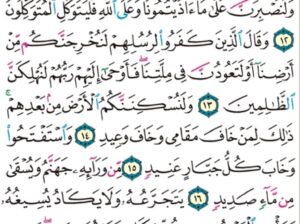 وَلَنَصْبِرَنَّ عَلَىٰ مَا ءَاذَيْتُمُونَا وَعَلَى ٱللَّهِ فَلْيَتَوَكَّلِ ٱلْمُتَوَكِّلُونَ
١٢ وَقَالَ ٱلَّذِينَ كَفَرُوا۟ لِرُسُلِهِمْ لَنُخْرِجَنَّكُم مِّنْ
أَرْضِنَآ أَوْ لَتَعُودُنَّ فِى مِلَّتِنَا فَأَوْحَىٰٓ إِلَيْهِمْ رَبُّهُمْ لَنُهْلِكَنَّ
ٱلظَّـٰلِمِينَ ١٣ وَلَنُسْكِنَنَّكُمُ ٱلْأَرْضَ مِنۢ بَعْدِهِمْ ۚ
ذَٰلِكَ لِمَنْ خَافَ مَقَامِى وَخَافَ وَعِيدِ ١٤ وَٱسْتَفْتَحُوا۟
وَخَابَ كُلُّ جَبَّارٍ عَنِيدٍ ١٥ مِّن وَرَآئِهِۦ جَهَنَّمُ وَيُسْقَىٰ
مِن مَّآءٍ صَدِيدٍ ١٦ يَتَجَرَّعُهُۥ وَلَا يَكَادُ يُسِيغُهُۥ